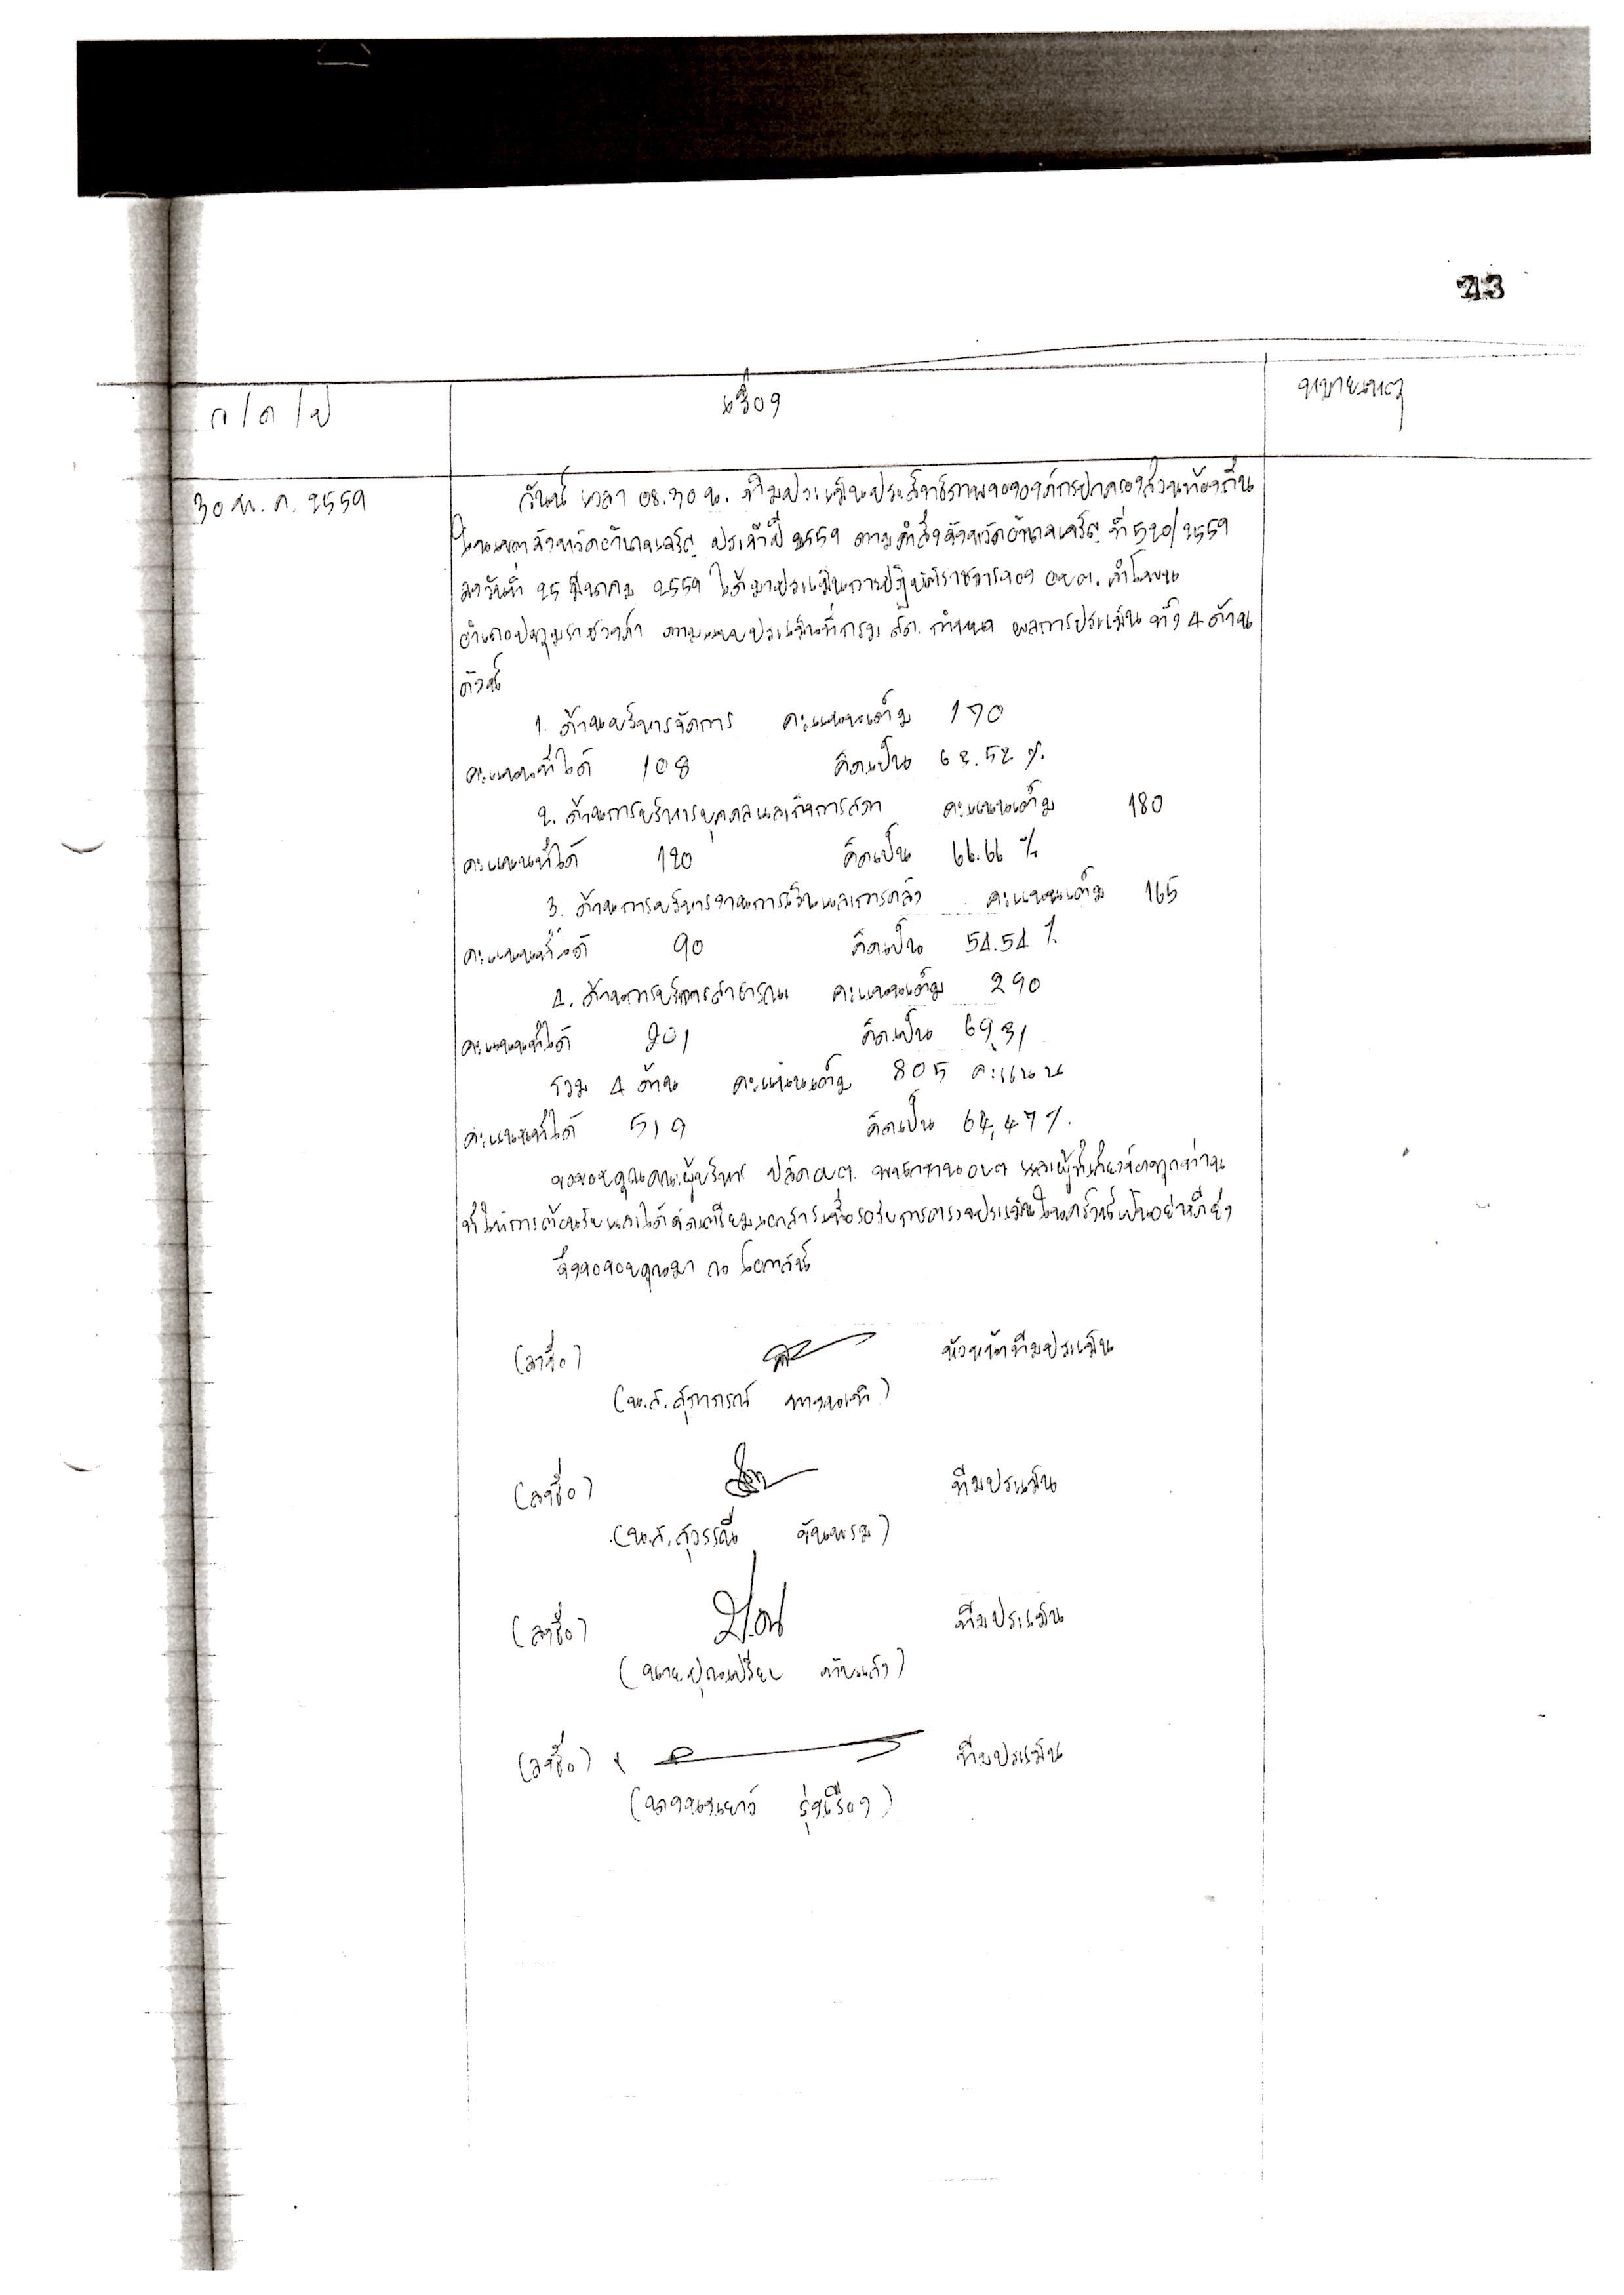 213
ว/ด/ป
เรื่อง
หมายเหตุ
30 พ.ค. 2559
วันนี้ เวลา 08.30 น. ทีมประเมินประสิทธิภาพขององค์กรปกครองส่วนท้องถิ่น
ในเขตจังหวัดอำนาจเจริญ ประจำปี 2559 ตามคำสั่งจังหวัดอำนาจเจริญ ที่ 520/2559
ลงวันที่ 25 มีนาคม 2559 ได้มาประเมินการปฏิบัติราชการของ อบต.
อำเภอปทุมราชวงศา ตามแบบประเมินที่กรม สถ. กำหนด ผลการประเมิน ทั้ง 4 ด้าน
ดังนี้
1. ด้านบริหารจัดการ คะแนนเต็ม 170
คะแนนที่ได้ 108 คิดเป็น 63.52 %
2. ด้านการบริหารบุคคลและกิจการสภา คะแนนเต็ม 180
คะแนนที่ได้ 120 คิดเป็น 66.66 %
3. ด้านการบริหารงานการเงินและการคลัง คะแนนเต็ม 165
คะแนนที่ได้ 90 คิดเป็น 54.54 %
4. ด้านการบริการสาธารณะ คะแนนเต็ม 290
คะแนนที่ได้ 201 คิดเป็น 69.31
รวม 4 ด้าน คะแนนเต็ม 805 คะแนน
คะแนนที่ได้ 519 คิดเป็น 64.47 %
ขอขอบคุณคณะผู้บริหาร ปลัดอบต. พนักงานอบต และผู้ที่เกี่ยวข้องทุกท่าน
ที่ให้การต้อนรับและได้จัดเตรียมเอกสารเพื่อรองรับการตรวจประเมินในครั้งนี้เป็นอย่างดียิ่ง
จึงขอขอบคุณมา ณ โอกาสนี้
(ลงชื่อ) หัวหน้าทีมประเมิน
(น.ส.สุภาภรณ์)
(ลงชื่อ) ทีมประเมิน
(น.ส.สุวรรณี จันพรม)
(ลงชื่อ) ทีมประเมิน
(นาย)
(ลงชื่อ) ทีมประเมิน
(นางนงเยาว์ รุ่งเรือง)